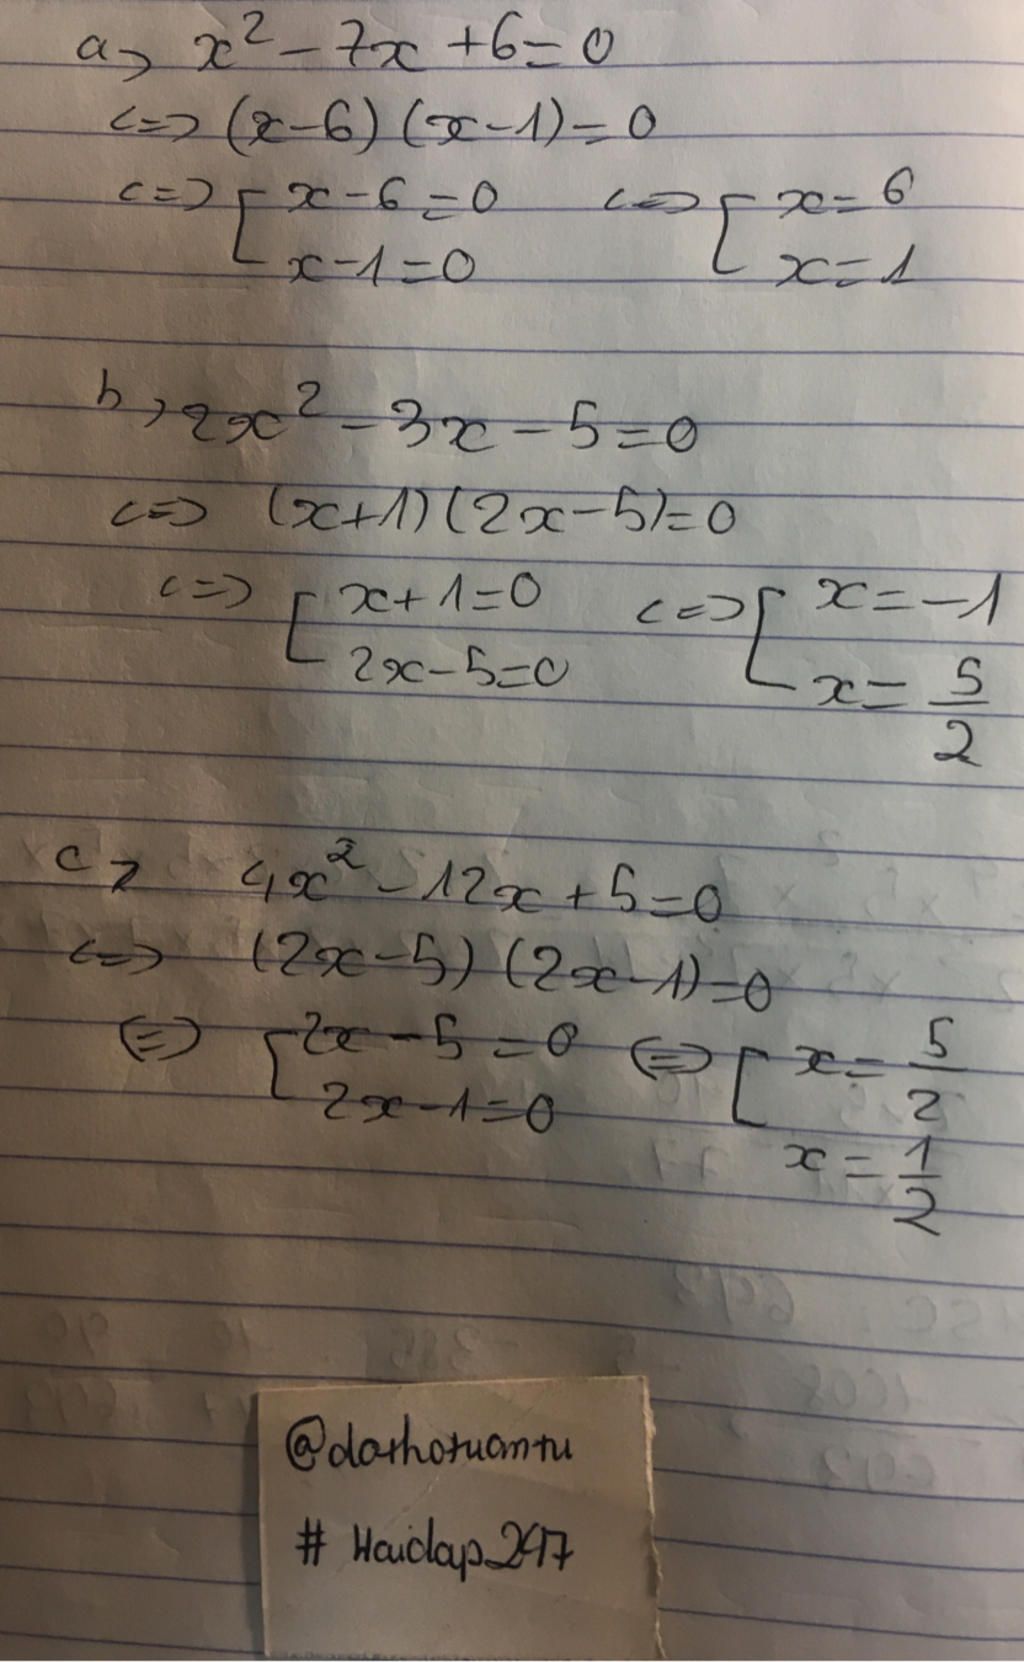 a> x² - 7x + 6 = 0
<=> (x-6) (x-1) = 0
<=> [ x-6 = 0 <=> [ x = 6
x-1 = 0 x = 1
b> 2x² - 3x - 5 = 0
<=> (x+1) (2x-5) = 0
<=> [ x+1 = 0 <=> [ x = -1
2x-5 = 0 x = 5/2
c> 4x² - 12x + 5 = 0
<=> (2x-5) (2x-1) = 0
<=> [ 2x-5 = 0 <=> [ x = 5/2
2x-1 = 0 x = 1/2
@dathotuantu
# Hoidap247